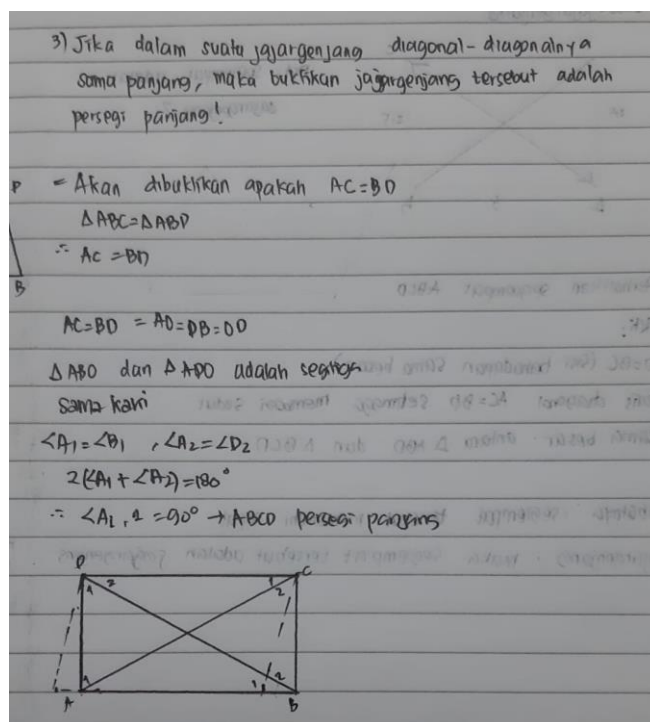 3) Jika dalam suatu jajargenjang diagonal-diagonalnya
sama panjang, maka buktikan jajargenjang tersebut adalah
persegi panjang!
= Akan dibuktikan apakah AC=BD
P
∆ABC=∆ABD
∴ AC =BD
B
AC=BD = AO=OB=OD
∆ ABO dan ∆ ADO adalah segitiga
sama kaki
∠A1=∠B1 , ∠A2=∠D2
2(∠A1+∠A2)=180°
∴ ∠A1,2 =90° → ABCD persegi panjang
D C
1 2 1 2
1 1 2
A B